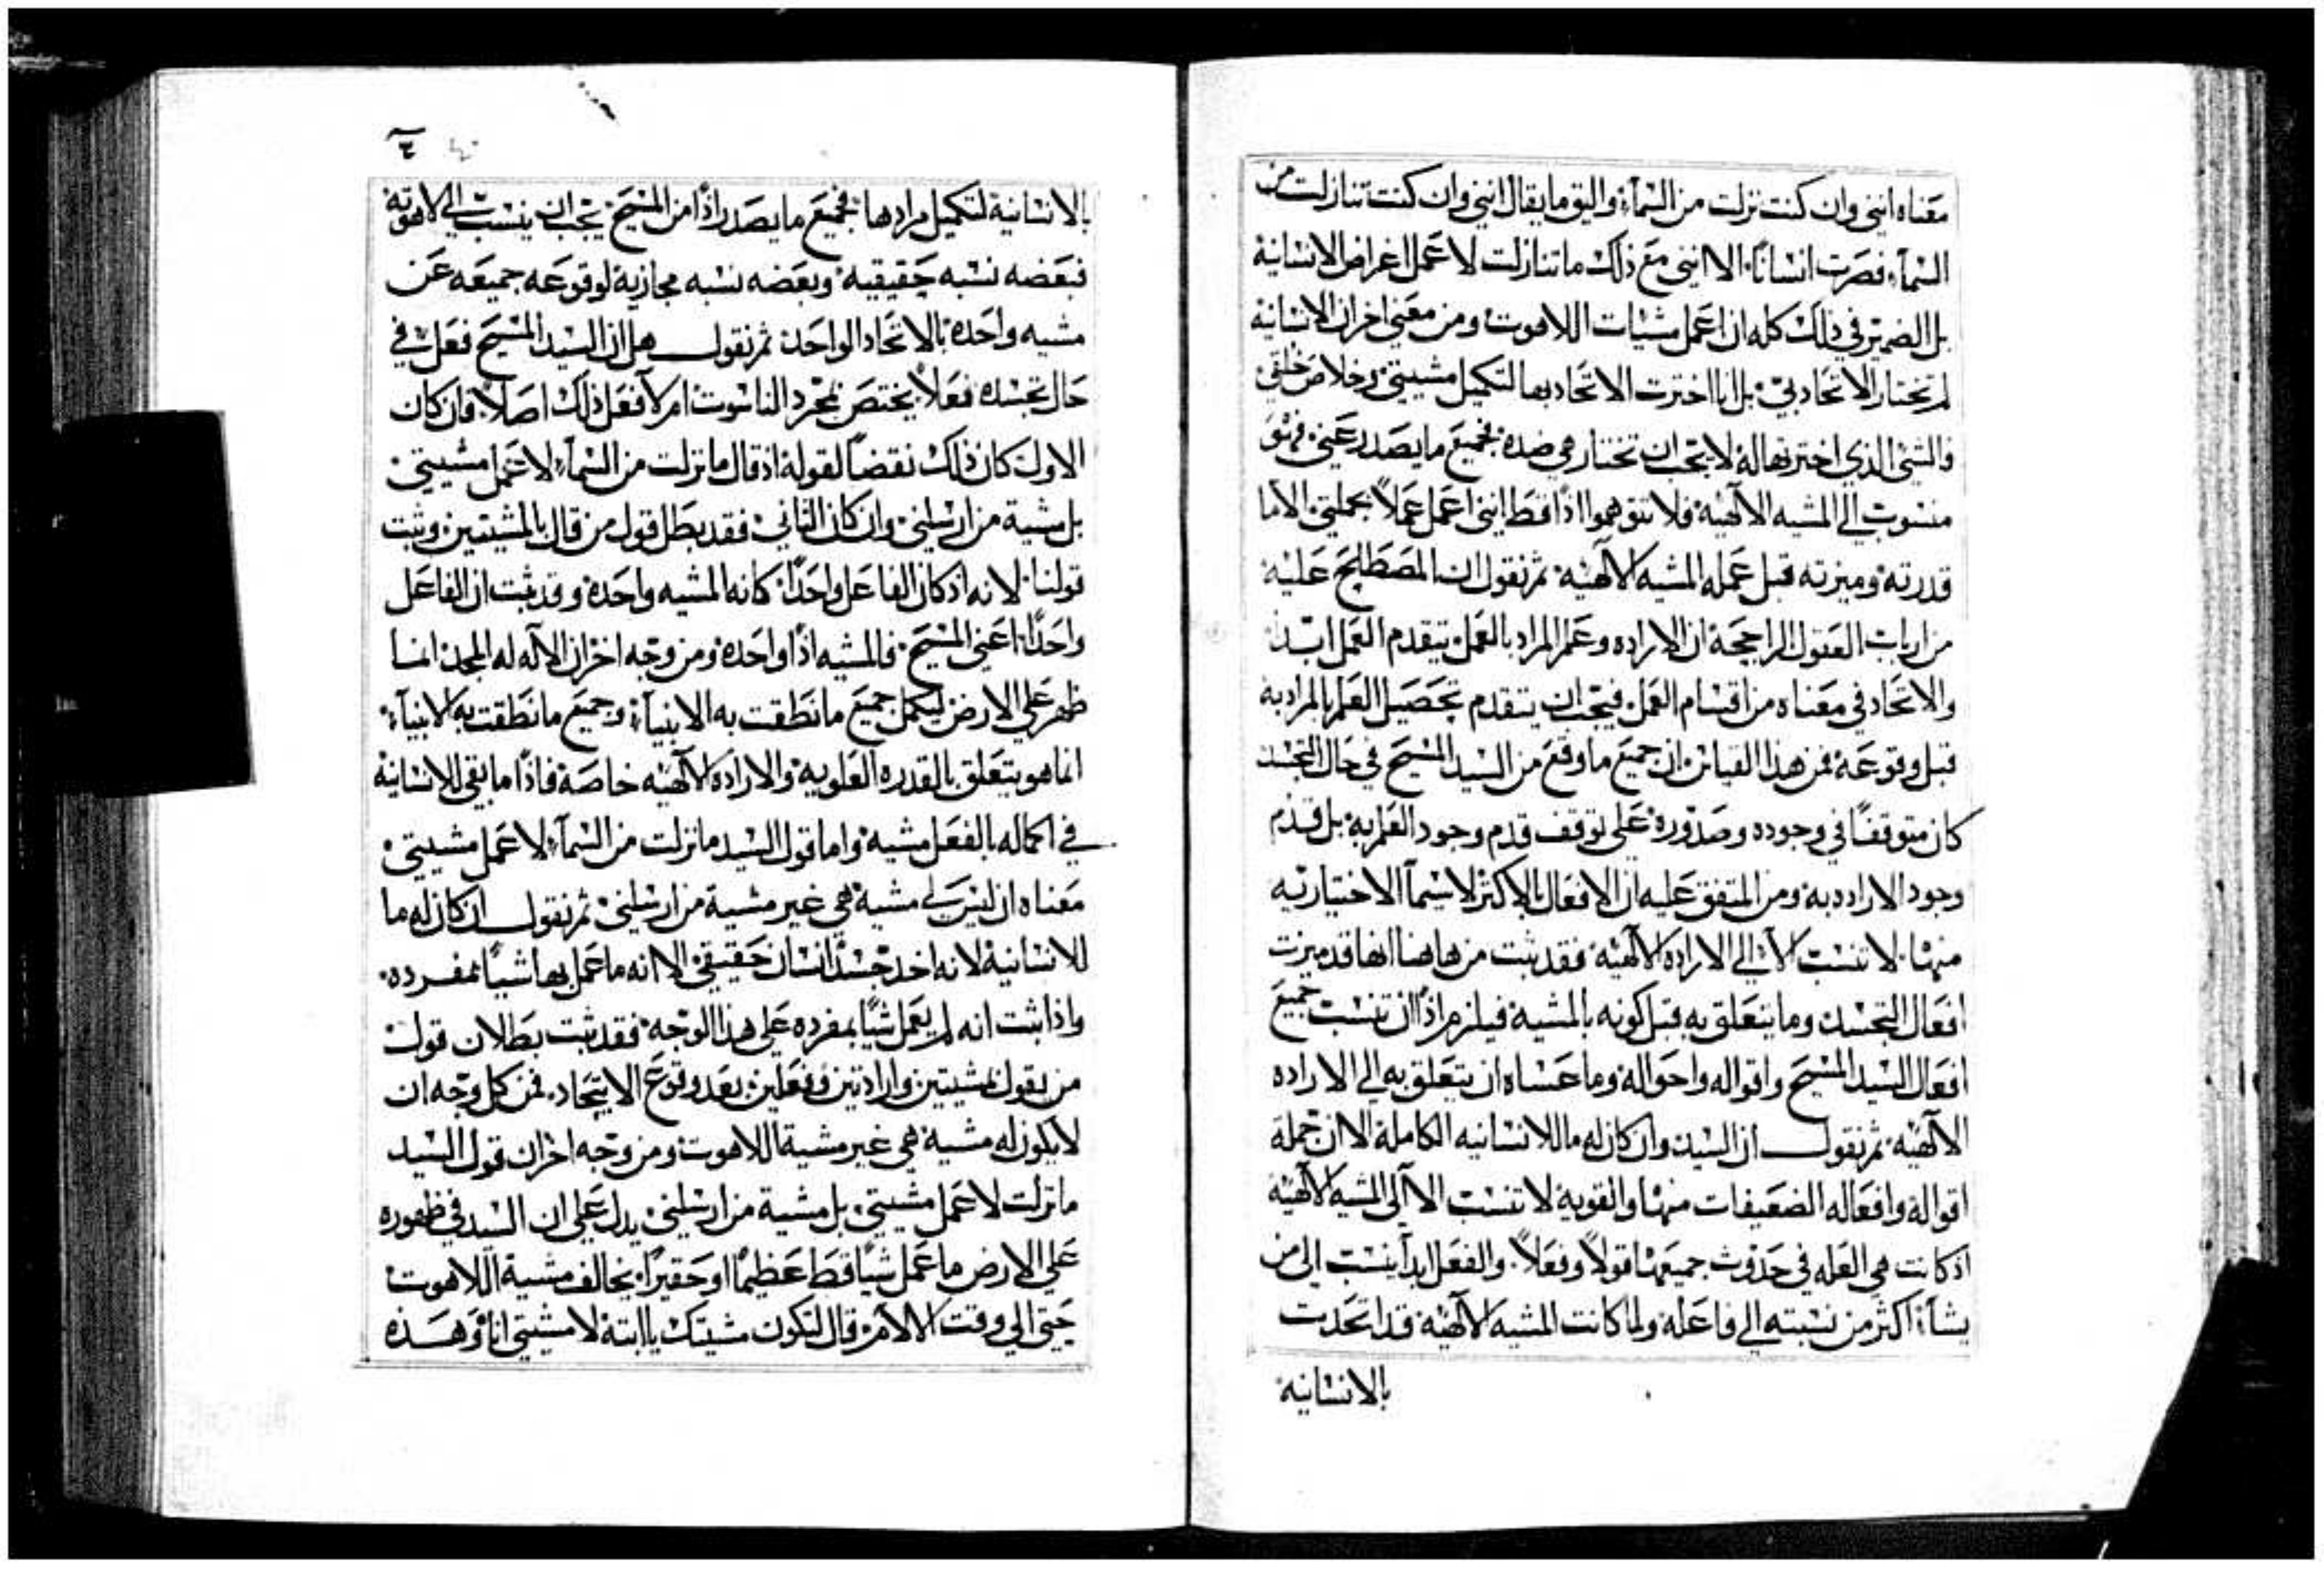 معناه انني وان كنت نزلت من السمآء واليق ما يقال انني وان كنت تنازلت من
السمآء فصرت انسانًا. الا انني مع ذلك ما تنازلت لاعمل اغراض الانسانية
بل الضمير في ذلك كله ان اعمل مشيات اللاهوت ومن معني اخر ان الانسانية
لم تختار الاتحاد بي بل انا اخترت الاتحاد بها لتكميل مشيتي وخلاص خلقي
فالشي الذي اخترتها له لا يجب ان تختار هي ضده فجميع ما يصدر عني فهو
منسوب الي المشيه الالهيه فلا تتوهموا اذًا قط انني اعمل عملاً بجملتي الا ما
قدرته وميزته قبل عمله المشيه الالهيه ثم نقول ان المصطلح عليه
من ارباب العقول الراجحة ان الاراده وعمر المراد بالعمل يتقدم العمل ابدًا
والاتحاد في معناه من اقسام العمل فيجب ان يتقدم تحصيل العلم بالمراد به
قبل وقوعه فمن هذا القياس ان جميع ما وقع من السيد المسيح في حال التجسد
كان متوقفًا في وجوده وصدوره علي توقف قدم وجود العلم به بل قدم
وجود الاراده به ومن المتفق عليه ان الافعال بالاكثر لاسيما الاختياريه
منها. لا تنسب الا الي الاراده الالهيه فقد ثبت من هاهنا انها قد ميزت
افعال التجسد وما يتعلق به قبل كونه بالمشية فيلزم اذًا ان تنسب جميع
افعال السيد المسيح واقواله واحواله وما عساه ان يتعلق به الي الاراده
الالهيه ثم نقول ان السيد وان كان له ما للانسانيه الكاملة الا ان جملة
اقواله وافعاله الضعيفات منها والقوية لا تنسب الا الي المشيه الالهيه
اذ كانت هي العله في حدوث جميعها قولاً وفعلاً. والفعل ابدآ ينسب الي من
يشآء اكثر من نسبته الي فاعله ولما كانت المشيه الالهيه قد اتحدت
بالانسانيه
بالانسانية لتكميل مرادها فجميع ما يصدر اذًا من المسيح يجب ان ينسب الي لاهوته
فبعضه نسبه حقيقيه وبعضه نسبه مجازية لوقوعه جميعه عن
مشيه واحده بالاتحاد الواحد ثم نقول هل ان السيد المسيح فعل في
حال تجسده فعلاً يختص بمجرد الناسوت ام لا فعل ذلك اصلاً. فان كان
الاول كان ذلك نقضًا لقوله اذ قال ما نزلت من السمآء لاعمل مشيتي
بل مشية من ارسلني وان كان الثاني فقد بطل قول من قال بالمشيتين وثبت
قولنا لانه اذ كان الفاعل واحدًا كانه المشيه واحده وقد ثبت ان الفاعل
واحدًا اعني المسيح فالمشيه اذًا واحده ومن وجه اخر ان الاله له المجد انما
ظهر علي الارض ليكمل جميع ما نطقت به الانبيآء وجميع ما نطقت به الانبيآء
انما هو يتعلق بالقدره العلويه والاراده الالهيه خاصة فاذًا ما بقي للانسانية
في اكماله بالفعل مشيه واما قول السيد ما نزلت من السمآء لاعمل مشيتي
معناه ان ليس لي مشية هي غير مشية من ارسلني ثم نقول ان كان له ما
للانسانية لانه اخد جسد انسان حقيقي الا انه ما عمل بها شيًا بمفرده.
واذا ثبت انه لم يعمل شيًا بمفرده علي هذا الوجه فقد ثبت بطلان قول
من يقول بمشيتين وارادتين وفعلين بعد وقوع الاتحاد. فمن كل وجه ان
لا يكون له مشية هي غير مشية اللاهوت ومن وجه اخر ان قول السيد
ما نزلت لاعمل مشيتي بل مشية من ارسلني يدل علي ان السيد في ظهوره
علي الارض ما عمل شيًا قط عظيمًا او حقيرًا يخالف مشية اللاهوت
حتي الي وقت الالام قال لتكون مشيتك يا ابتة لا مشيتي انا وهذه